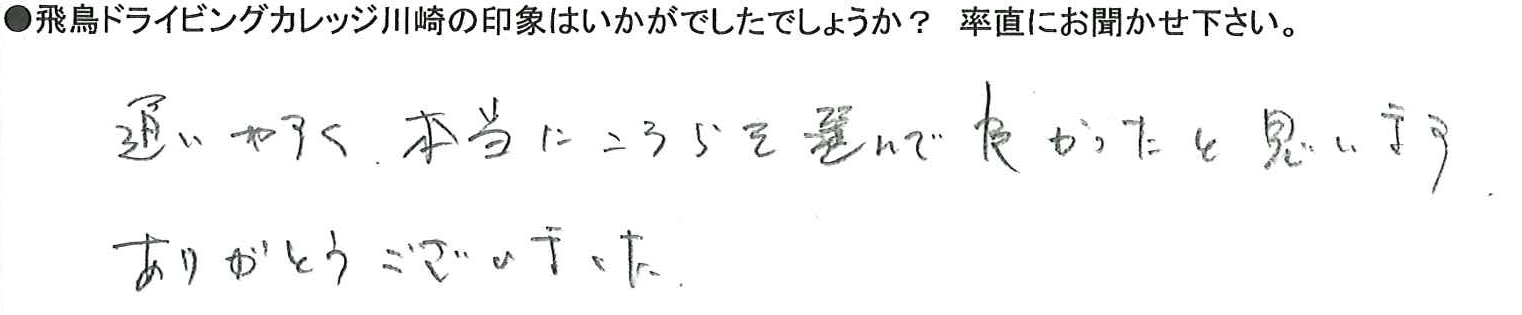 ●飛鳥ドライビングカレッジ川崎の印象はいかがでしたでしょうか？ 率直にお聞かせ下さい。
通いやすく、本当にこちらを選んで良かったと思います。
ありがとうございました。